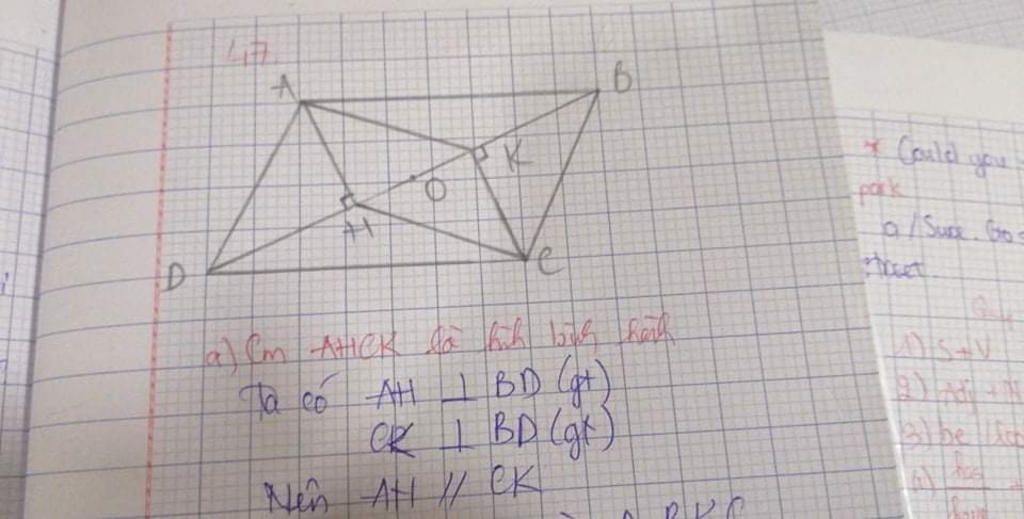 47
A
B
K
O
H
D
C
a) Cm AHCK là hình bình hành
Ta có AH ⊥ BD (gt)
CK ⊥ BD (gt)
Nên AH // CK
* Could you
park
a / Sure. Go
1) S + V
2)
3) be
4)